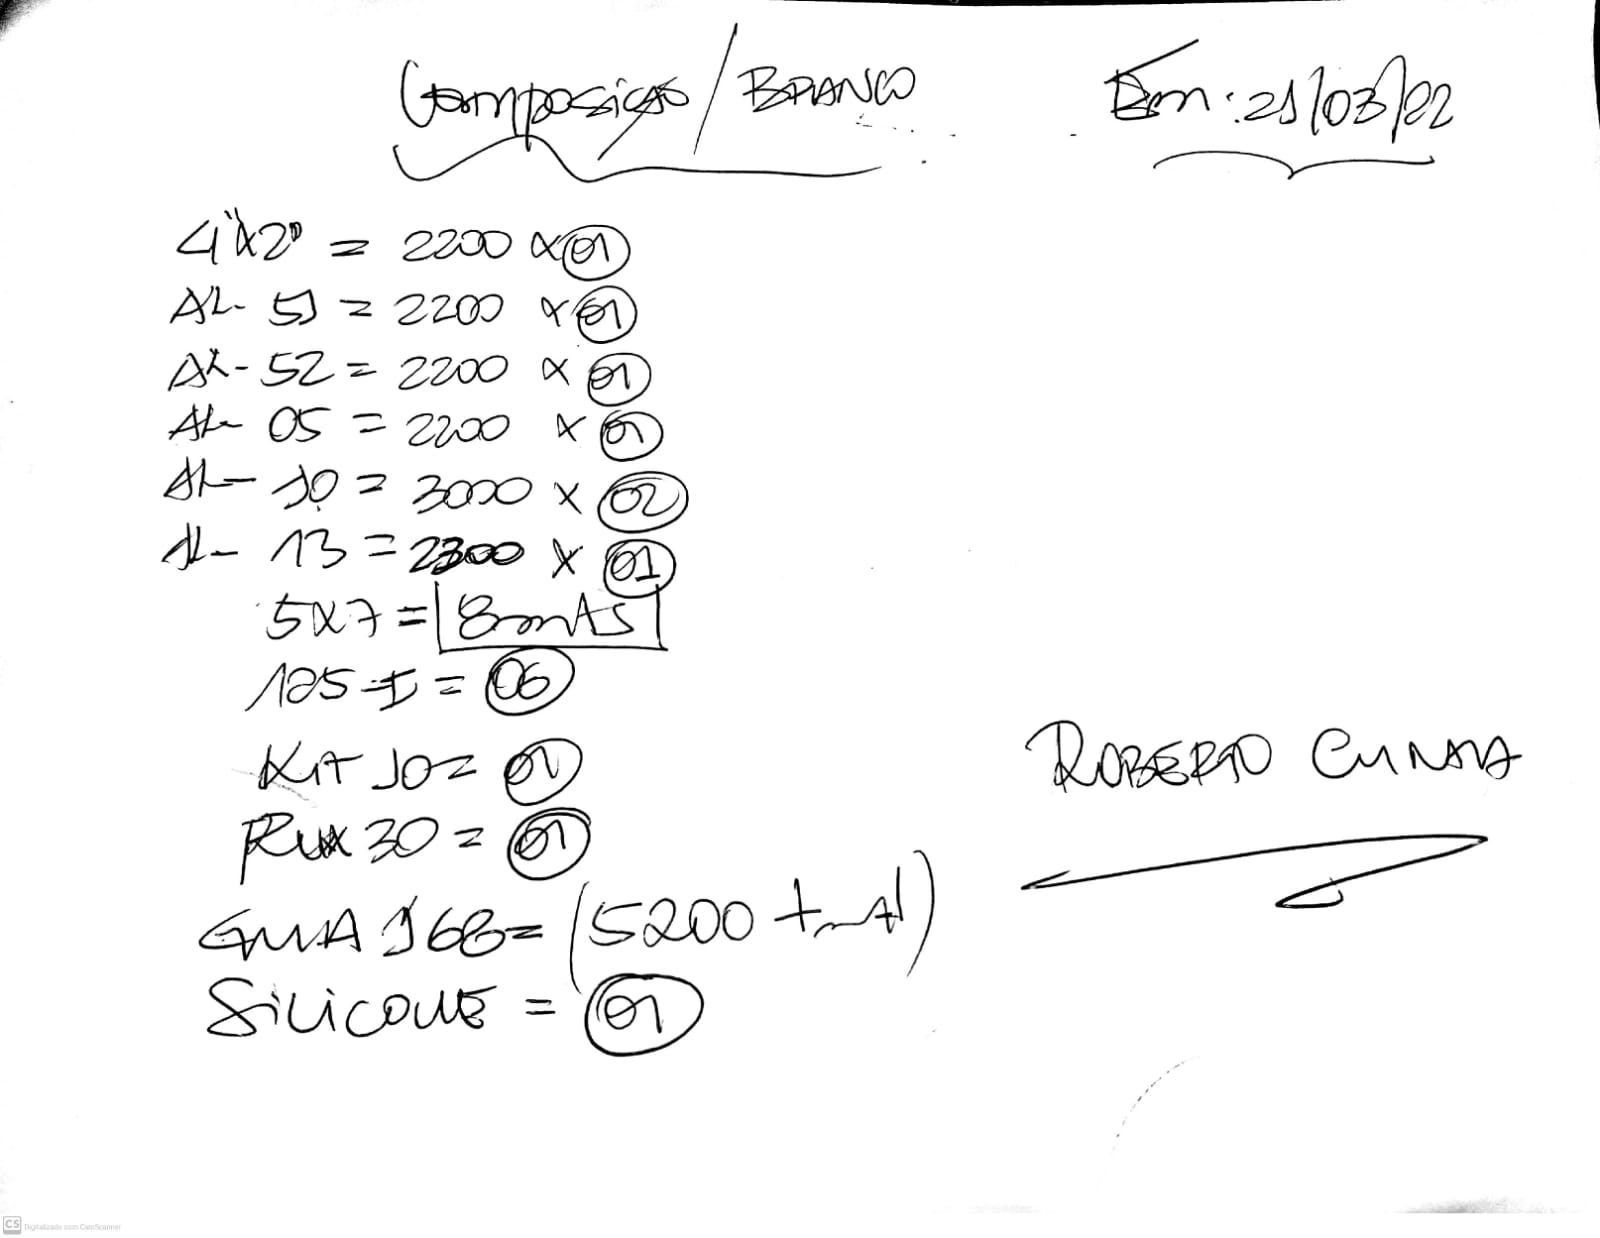 Composição / BRANCO Em: 21/03/22
4"x2" = 2200 x 01
AL- 51 = 2200 x 01
AL- 52 = 2200 x 01
AL- 05 = 2200 x 01
AL- 10 = 3000 x 02
AL- 13 = 2300 x 01
5x7 = 8mts
125-I = 06
Kit 10 = 01
RUX 30 = 01
ROBERTO CUNHA
GUIA 168 = (5200 total)
SILICONE = 01
CS Digitalizado com CamScanner